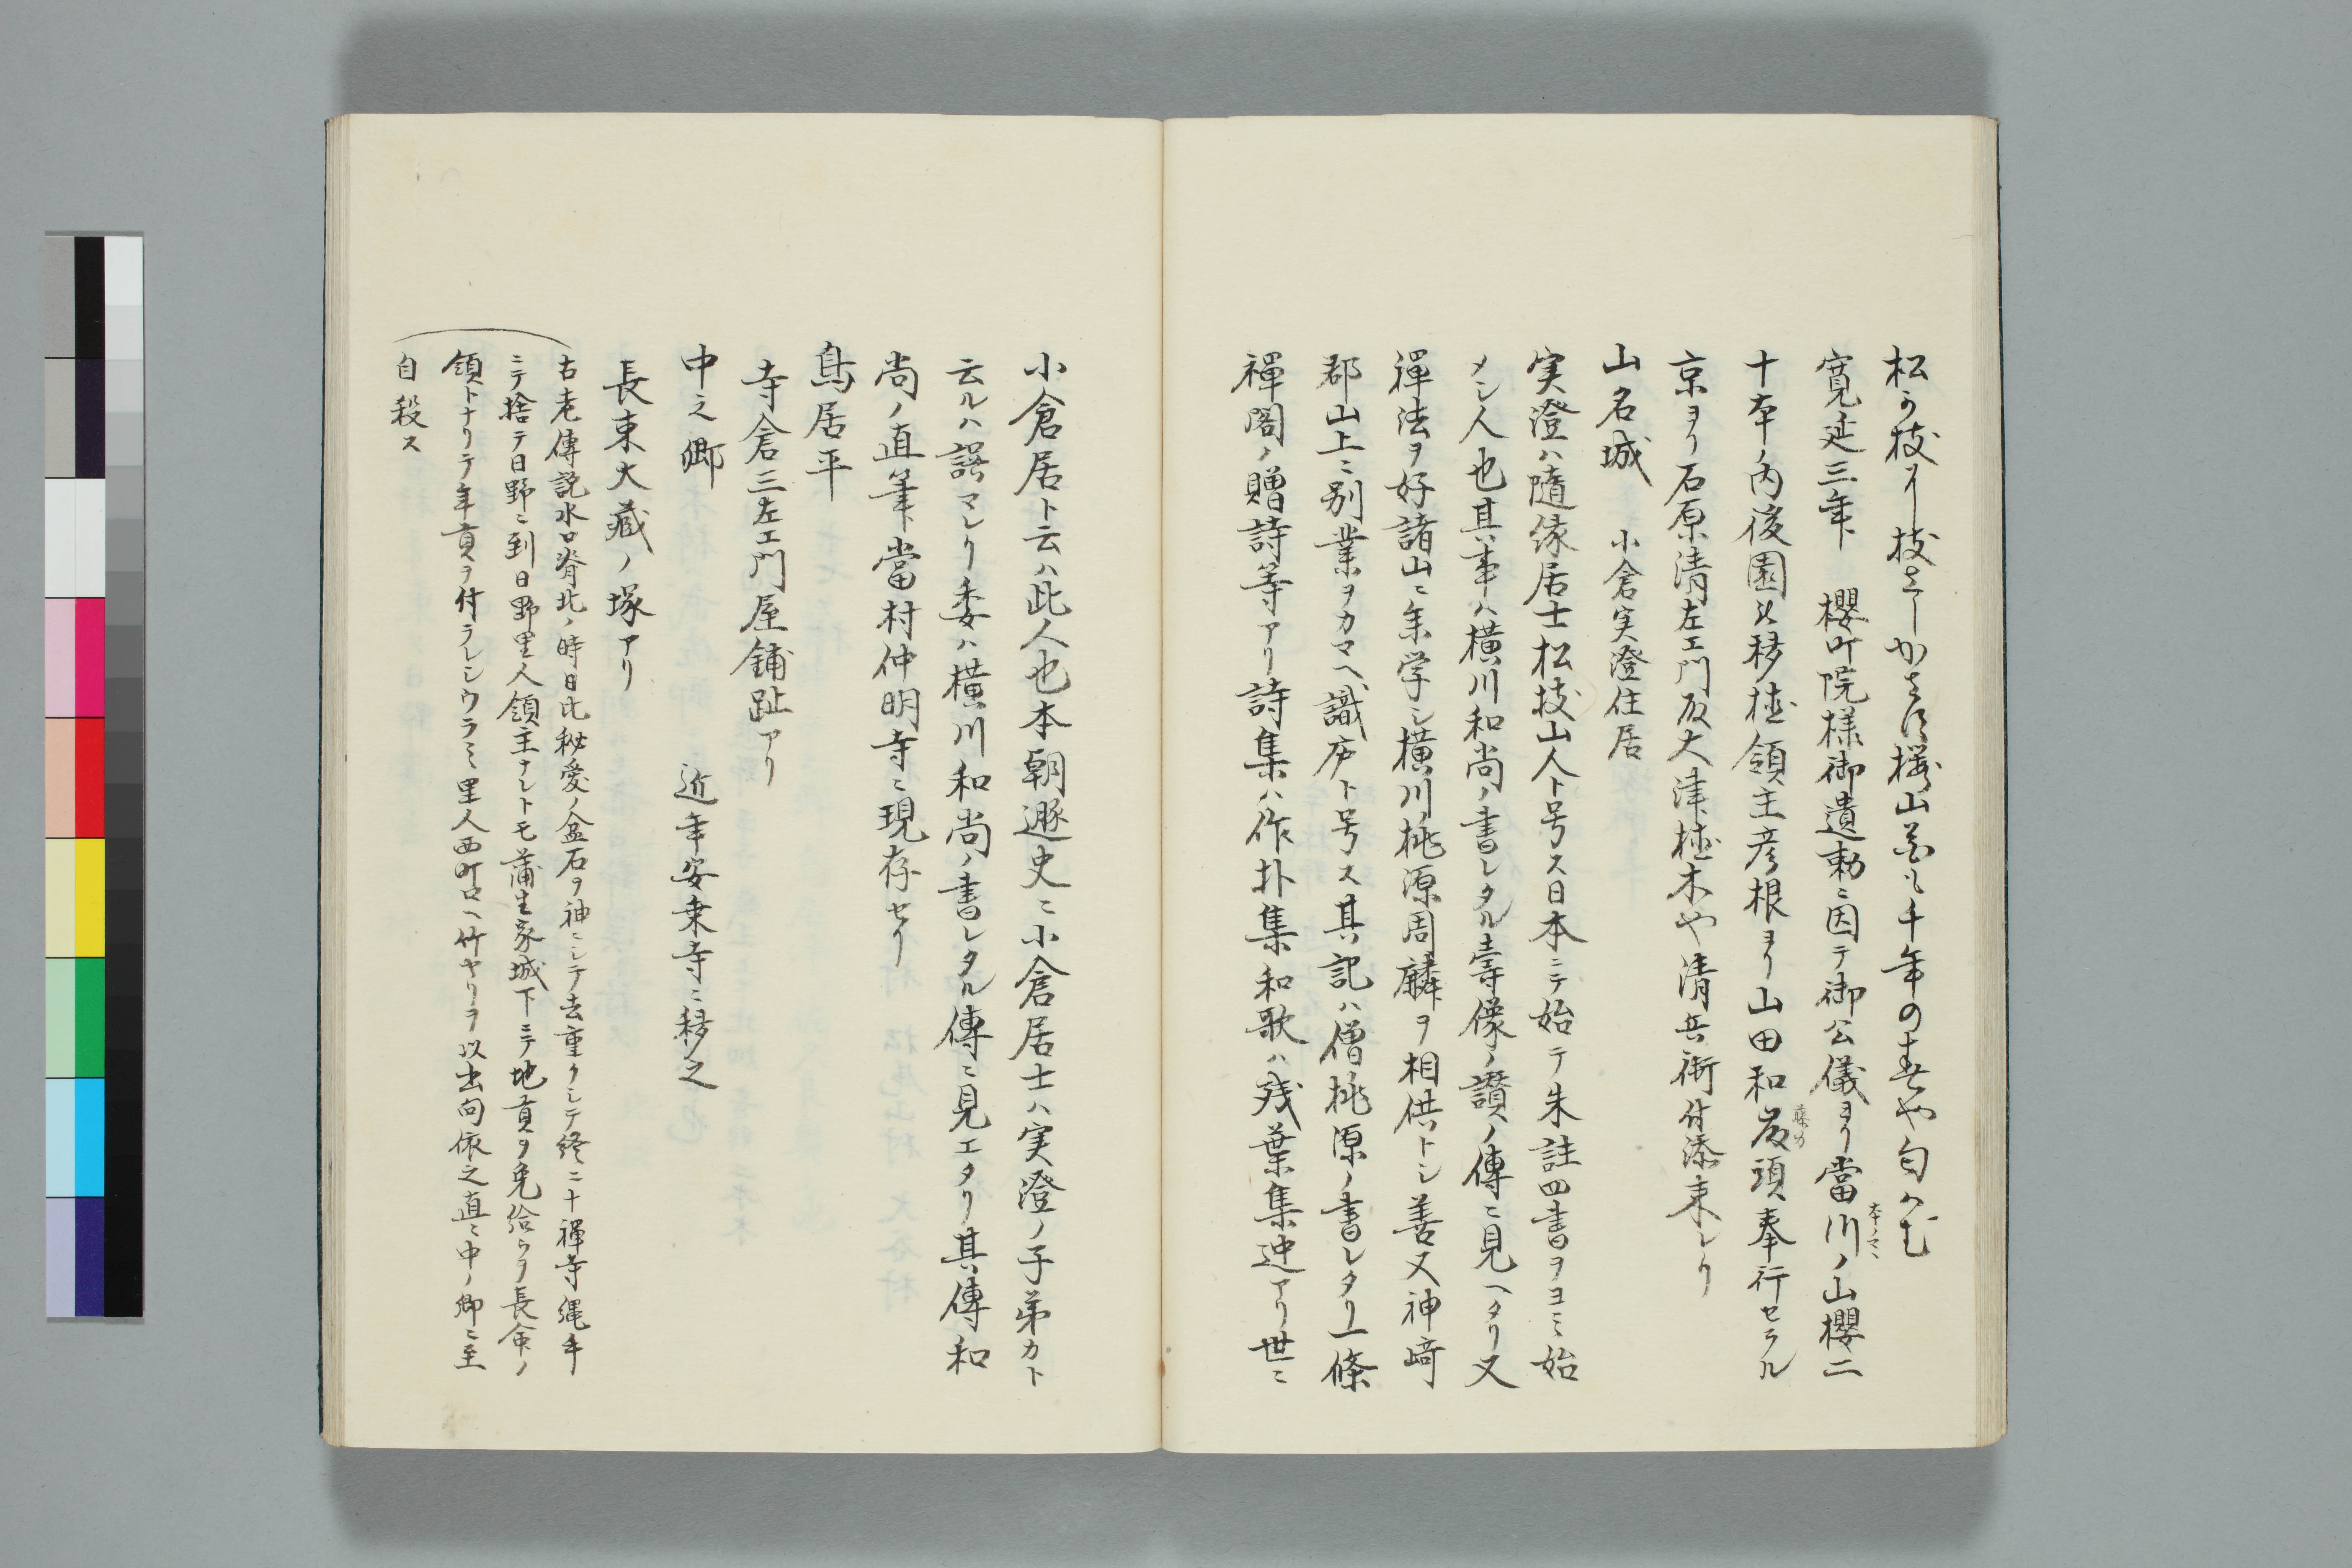 松の枝に枝さしかさす櫻山花も千年の春や匂はむ
寛延三年　櫻町院様御遺勅ニ因テ御公儀ヨリ當川ノ山櫻二
本ノマヽ
十本ノ内後園エ移植領主彦根ヨリ山田和炭頭奉行セラル
藤カ
京ヨリ石原清左エ門及大津植木や清兵衛付添来レリ
山名城　小倉実澄住居
実澄ハ隨縁居士松枝山人ト号ス日本ニテ始テ朱註四書ヲヨミ始
メシ人也其事ハ横川和尚ノ書レタル壽像ノ讃ノ傳ニ見ヘタリ又
禪法ヲ好諸山ニ参学シ横川桃源周麟ヲ相供トシ善又神﨑
郡山上ニ別業ヲカマヘ識庐ト号ス其記ハ僧桃源ノ書レタリ一條
禪閤ノ贈詩等アリ詩集ハ作朴集和歌ハ残葉集迚アリ世ニ
小倉居ト云ハ此人也本朝遯史ニ小倉居士ハ実澄ノ子弟カト
云ルハ誤マレリ委ハ横川和尚ノ書レタル傳ニ見エタリ其傳和
尚ノ直筆當村仲明寺ニ現存セリ
鳥居平
寺倉三左エ門屋鋪趾アリ
中之郷　近年安乗寺ニ移之
長束大蔵ノ塚アリ
古老傳説水口脊北ノ時日比秘愛ノ盆石ヲ神ニシテ去重クシテ終ニ十禪寺縄手
ニテ捨テ日野ニ到日野里人領主ナレトモ蒲生家城下ニテ地貢ヲ免給ウヲ長命ノ
領トナリテ年貢ヲ付ラレシウラミ里人西町口ヘ竹ヤリヲ以出向依之直ニ中ノ郷ニ至
自殺ス